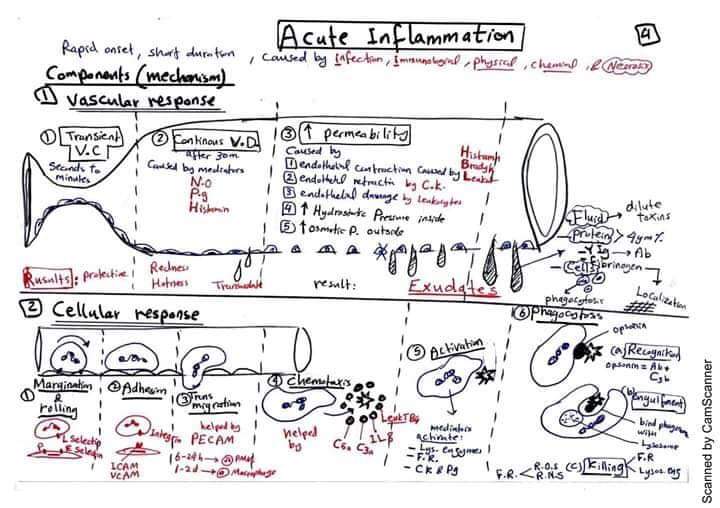 Acute Inflammation
4
Rapid onset, short duration, caused by Infection, Immunological, physical, chemical, & Necrosis
Components (mechanism)
1 Vascular response
1 Transient V.C
Seconds to minutes
2 Continous V.D.
after 30m
Caused by mediators
N.O
P.g
Histamin
3 ↑ permeability
Caused by
1 endothelial contraction caused by Histamin Bradyk Leukot
2 endothelial retractin by C.K.
3 endothelial damage by Leukocytes
4 ↑ Hydrostatic Pressure inside
5 ↑ osmotic P. outside
Fluid → dilute toxins
protein > 4gm%
Ig → Ab
fibrinogen → Localization
Cells
phagocytosis
Rusults: protective
Redness
Hotness
Transudate
result: Exudates
2 Cellular response
1 Margination & rolling
L selectin
P E selectin
2 Adhesion
Integrin
ICAM
VCAM
3 Trans migration
helped by
PECAM
6-24h → PMNL
1-2d → Macrophage
4 Chemotaxis
helped by
C5a C3a IL-8 LeukTB4
5 Activation
mediators activate:
- Lys. enzymes
- F.R.
- CK & Pg
6 Phagocytosis
opsonin
(a) Recognition
opsonin = Ab + C3b
(b) engulfment
bind phagosome with Lysosome
(c) Killing
F.R. < R.O.S R.N.S
F.R
Lysoz.
Scanned by CamScanner